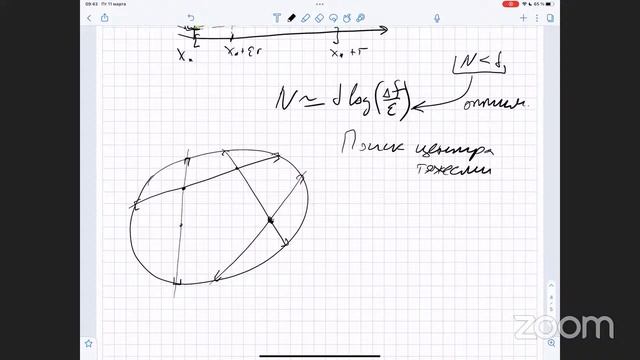 09:43 Пт 11 марта
65 %
x₀ x₀+εr x₀+r
N < d,
N ≃ d log(Δf/ε) оптим.
Поиск центра
тяжести
zoom